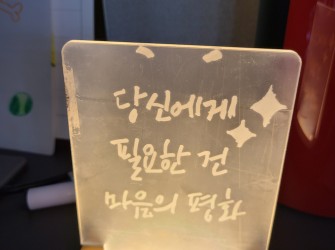 당신에게
필요한 건
마음의 평화